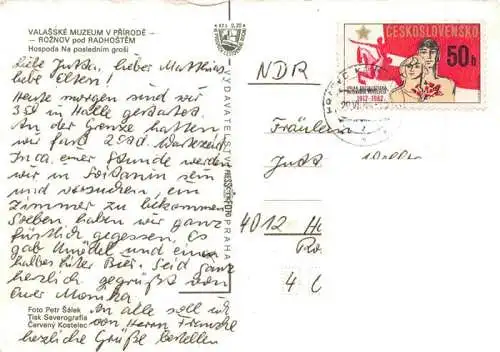 VALAŠSKÉ MUZEUM V PŘÍRODĚ -
- ROŽNOV pod RADHOŠTĚM
Hospoda Na posledním groši
Liebe Jutta, lieber Matthias
liebe Eltern!
Heute morgen sind wir
350 in Halle gestartet.
An der Grenze hatten
wir fast 2 Std. Wartezeit
In ca. einer Stunde werden
wir in sein
und versuchen, ein
Zimmer zu bekommen
Soeben haben wir ganz
fürstlich gegessen. Es
gab Knödel und einen
halben Liter Bier. Seid ganz
herzlich gegrüßt von
Eurer Monika
An alle soll ich
von Herrn Franche
herzliche Grüße bestellen
Foto Petr Šálek
Tisk Severografia
Červený Kostelec
VYDAVATELSTVÍ PRESSFOTO PRAHA
ČESKOSLOVENSKO
50 h
1912-1982
NDR
Fräulein
Jutt
4012 H